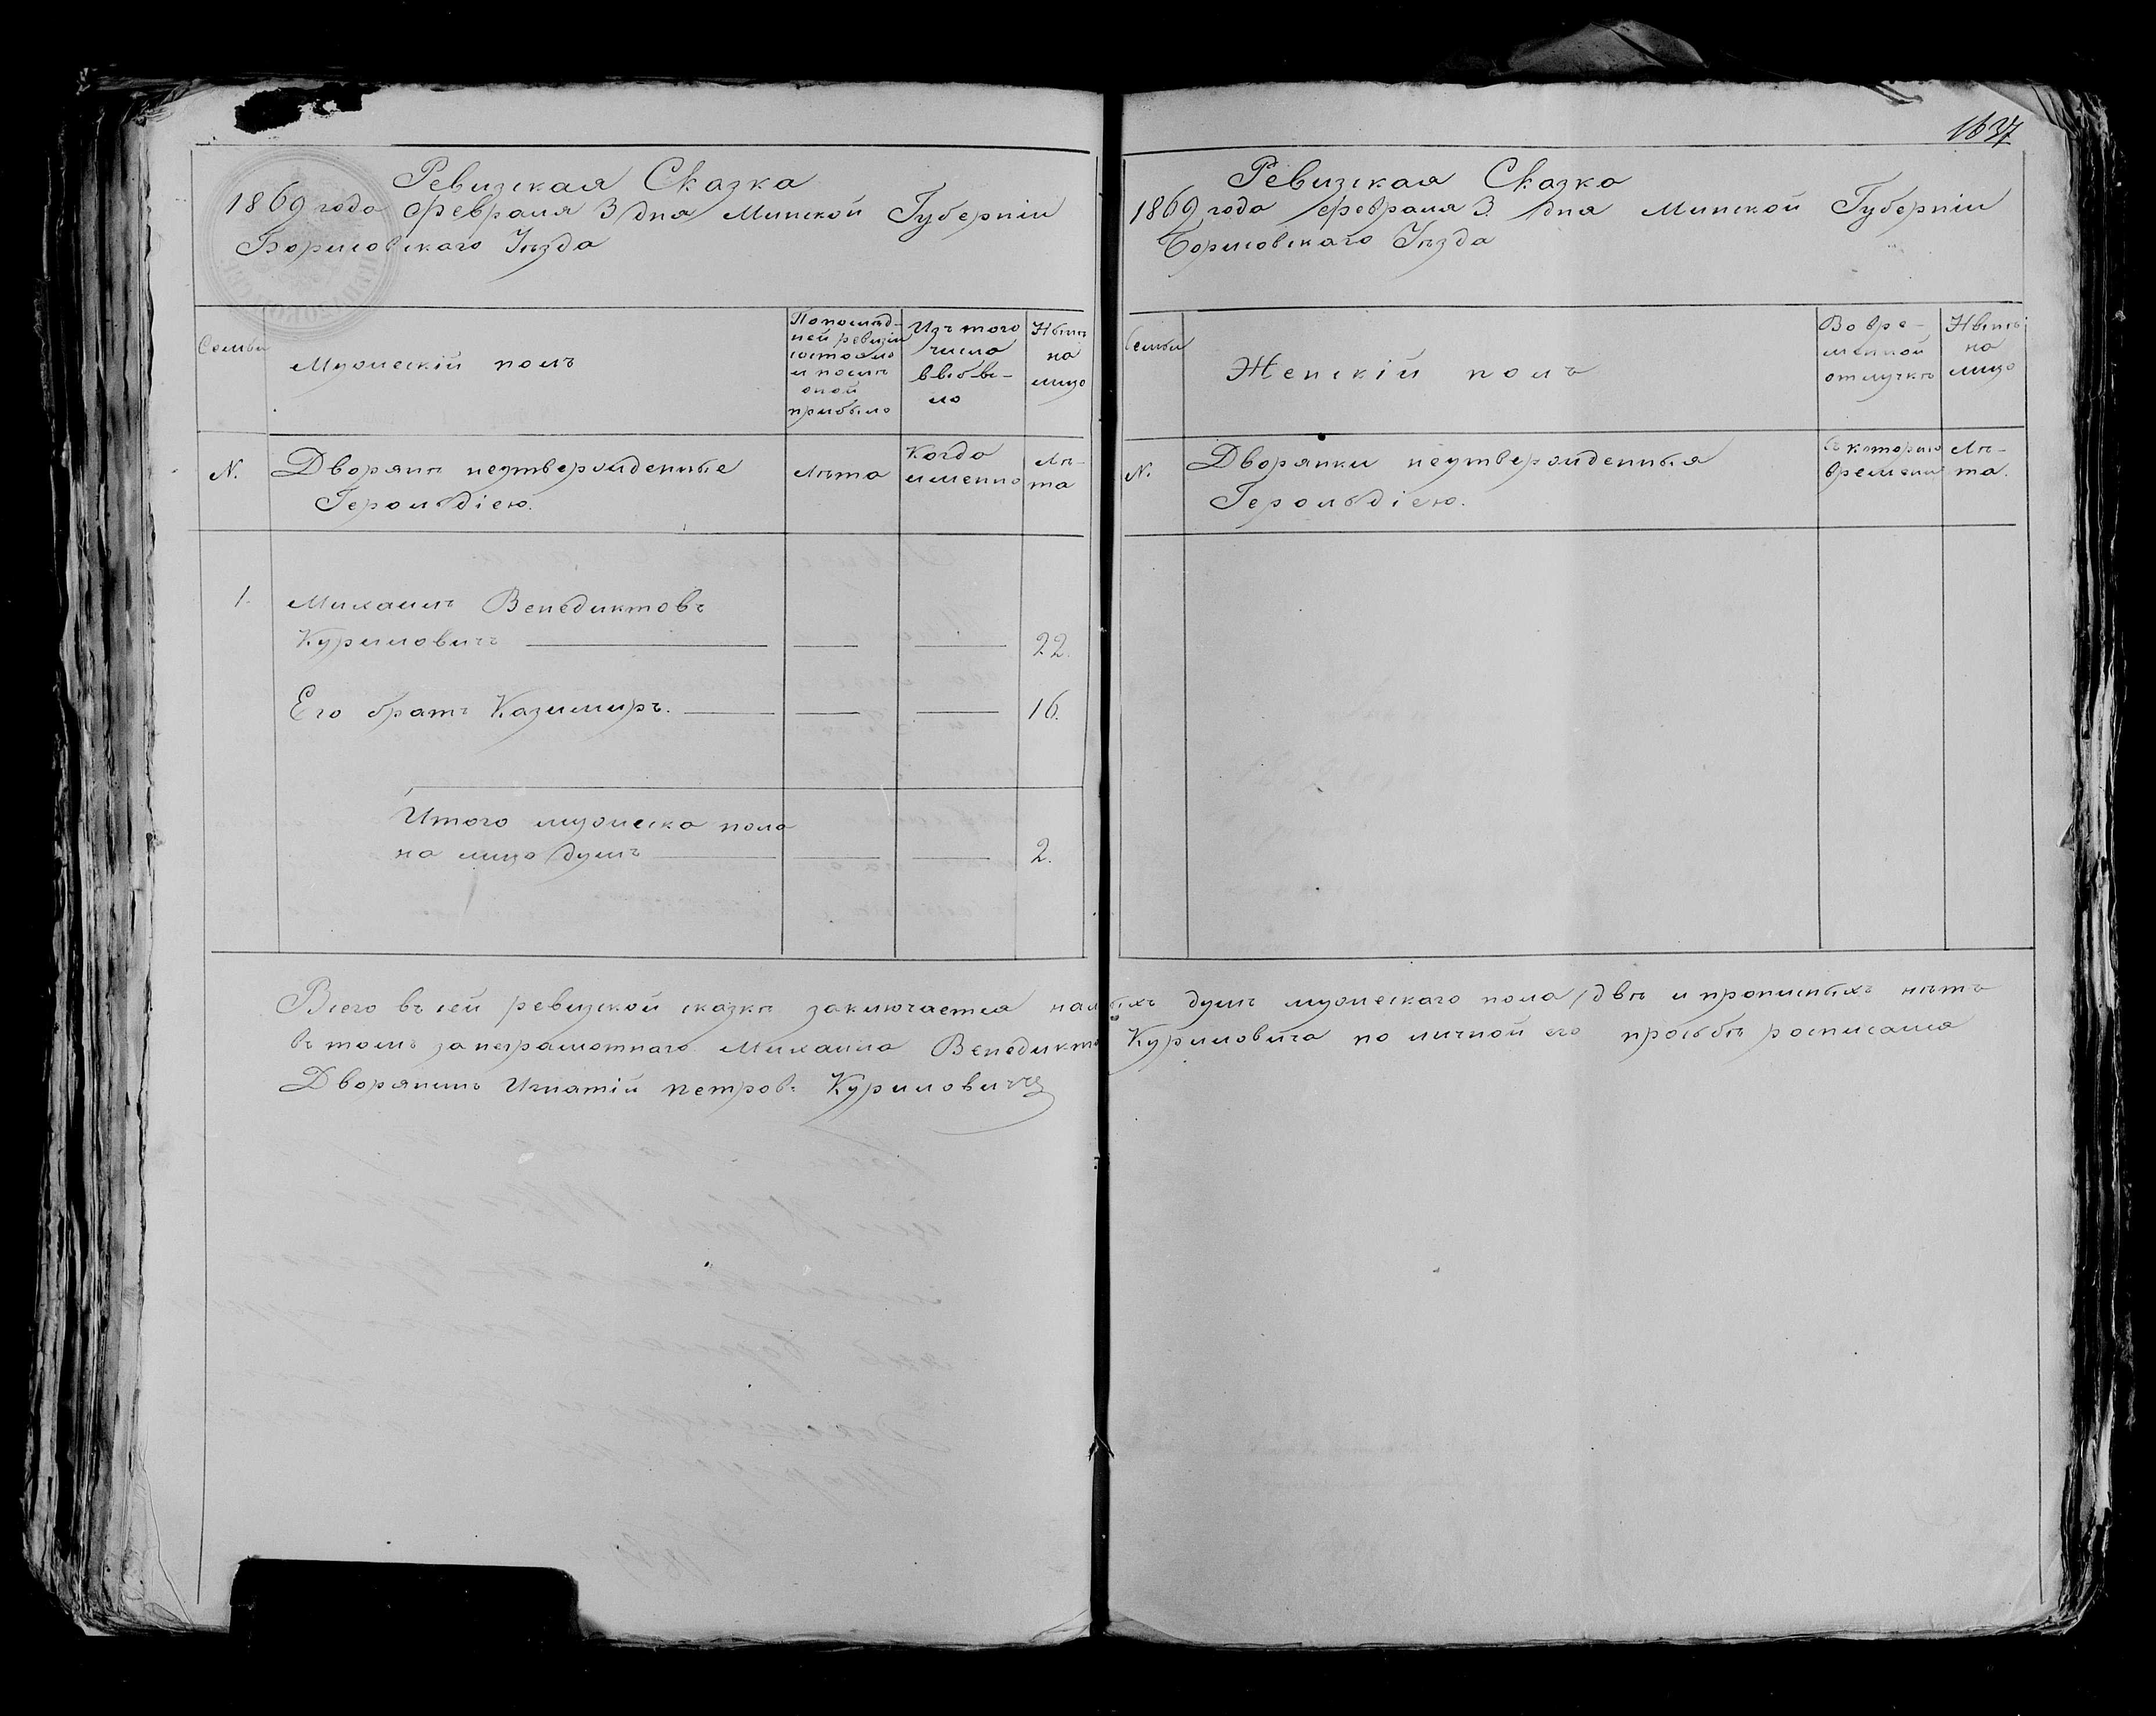 1637
Ревизская Сказка
1869 года Февраля 3 дня Минской Губерніи
Борисовскаго Уѣзда
Семьи
Мужескій полъ
По послѣд-
ней ревизіи
состояло
и послѣ
оной
прибыло
Изъ того
числа
выбы-
ло
Нынѣ
на
лицо
N.
Дворяне неутвержденные
Герольдіею.
Лѣта
Когда
именно
Лѣ-
та
1.
Михаилъ Венедиктовъ
Куриловичъ
22.
Его братъ Казимиръ.
16.
Итого мужеска пола
на лицо душъ
2.
Ревизская Сказка
1869 года Февраля 3. дня Минской Губерніи
Борисовскаго Уѣзда
Семьи
Женскій полъ
Во вре-
менной
отлучкѣ
Нынѣ
на
лицо
N.
Дворянки неутвержденныя
Герольдіею.
Съ котораго
времени
Лѣ-
та.
Всего въ сей ревизской сказкѣ заключается душъ мужескаго пола двѣ и прописныхъ нѣтъ
въ томъ за неграмотнаго Михаила Куриловича по личной его просьбѣ росписался
Дворянинъ Игнатій Петров: Куриловичъ